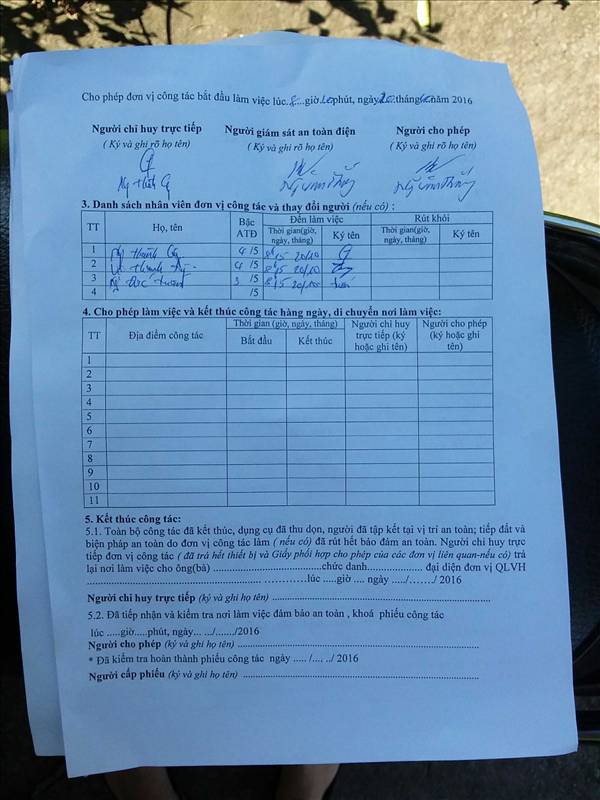 Cho phép đơn vị công tác bắt đầu làm việc lúc..8....giờ...phút, ngày20.tháng10.năm 2016
Người chỉ huy trực tiếp Người giám sát an toàn điện Người cho phép
( Ký và ghi rõ họ tên) ( Ký và ghi rõ họ tên) ( Ký và ghi rõ họ tên)
3. Danh sách nhân viên đơn vị công tác và thay đổi người (nếu có) :
TT Họ, tên Bậc ATĐ Đến làm việc Rút khỏi
Thời gian(giờ, ngày, tháng) Ký tên Thời gian(giờ, ngày, tháng) Ký tên
1 4 /5 8h15 20/10
2 4 /5 8h15 20/10
3 Đức 3 /5 8h15 20/10
4 /5
4. Cho phép làm việc và kết thúc công tác hàng ngày, di chuyển nơi làm việc:
TT Địa điểm công tác Thời gian (giờ, ngày, tháng) Người chỉ huy trực tiếp (ký hoặc ghi tên) Người cho phép (ký hoặc ghi tên)
Bắt đầu Kết thúc
1
2
3
4
5
6
7
8
9
10
11
5. Kết thúc công tác:
5.1. Toàn bộ công tác đã kết thúc, dụng cụ đã thu dọn, người đã tập kết tại vị trí an toàn; tiếp đất và
biện pháp an toàn do đơn vị công tác làm ( nếu có) đã rút hết bảo đảm an toàn. Người chỉ huy trực
tiếp đơn vị công tác ( đã trả hết thiết bị và Giấy phối hợp cho phép của các đơn vị liên quan-nếu có) trả
lại nơi làm việc cho ông(bà) ......................................chức danh.................... đại diện đơn vị QLVH
.............................................................. ...............lúc .....giờ .... ngày ...../......./ 2016
Người chỉ huy trực tiếp (ký và ghi họ tên) ..........................................................................
5.2. Đã tiếp nhận và kiểm tra nơi làm việc đảm bảo an toàn , khoá phiếu công tác
lúc .....giờ.....phút, ngày... .../......./2016
Người cho phép (ký và ghi họ tên) .....................................................................................
* Đã kiểm tra hoàn thành phiếu công tác ngày ..... /.... ../ 2016
Người cấp phiếu (ký và ghi họ tên) ....................................................................................